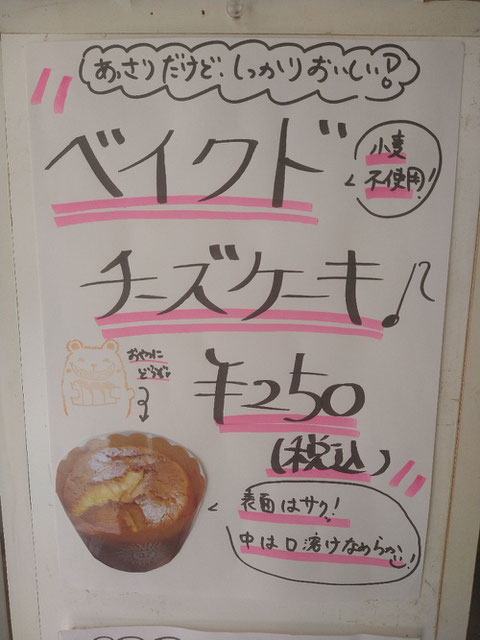 あっさりだけど、しっかりおいしい!
ベイクド
小麦
不使用!
チーズケーキ♪
おやつに
どうぞ
¥250
(税込)
表面はサクッ!
中は口溶けなめらか!